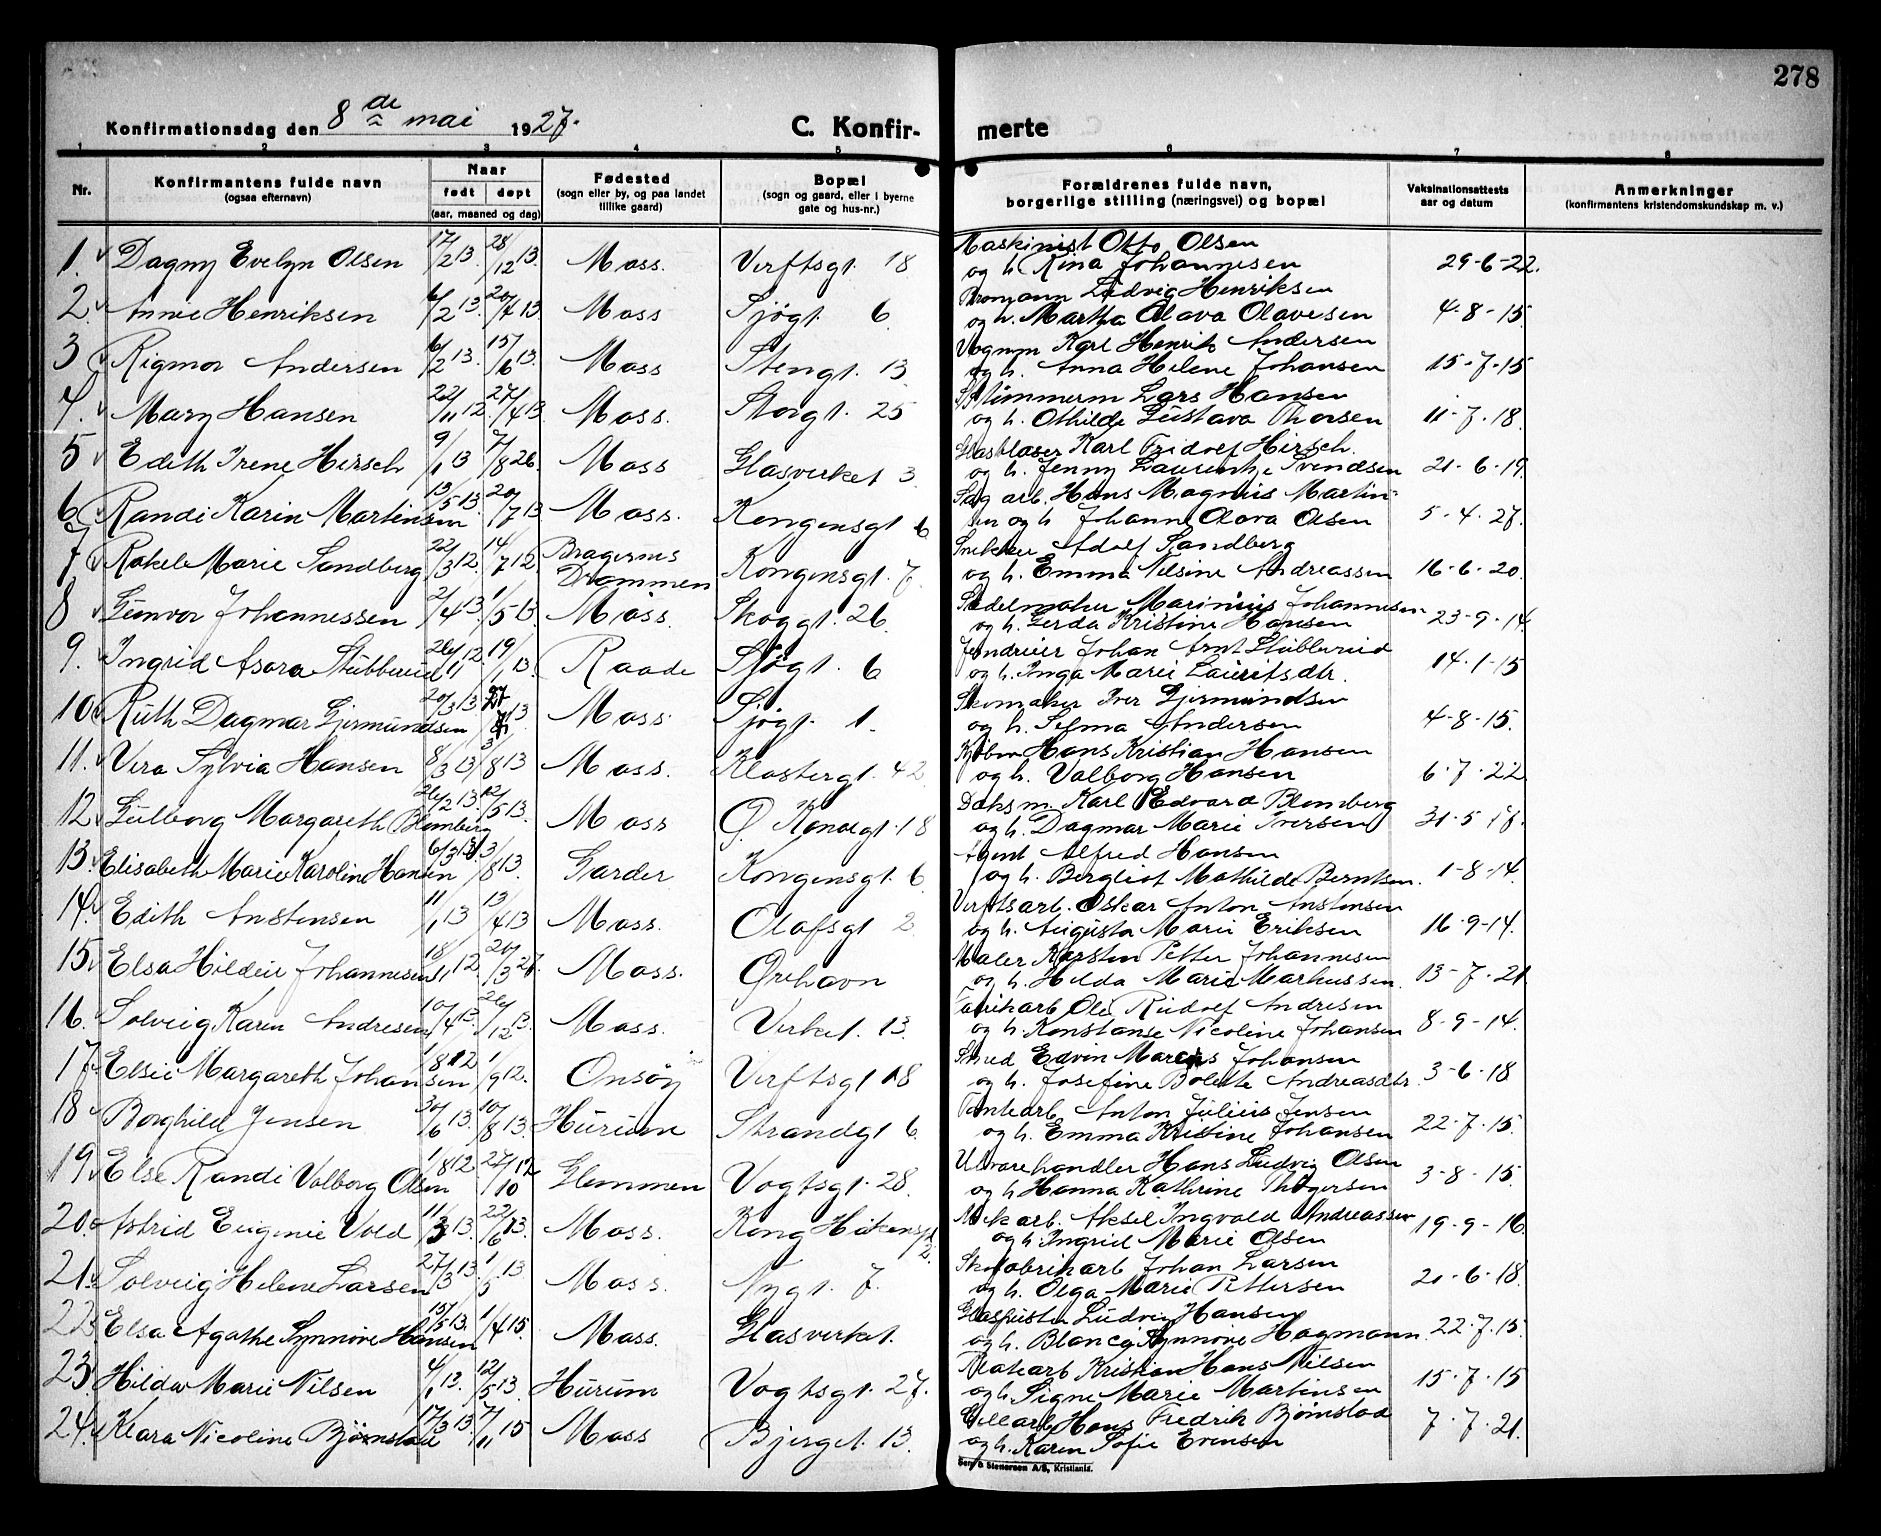 278
Konfirmationsdag den 8de mai 1927.
C. Konfirmerte
1 2 3 4 5 6 7 8
Nr.
Konfirmantens fulde navn
(ogsaa efternavn)
Naar
født døpt
(aar, maaned og dag)
Fødested
(sogn eller by, og paa landet
tillike gaard)
Bopæl
(sogn og gaard, eller i byerne
gate og hus-nr.)
Forældrenes fulde navn,
borgerlige stilling (næringsvei) og bopæl
Vaksinationsattests
aar og datum
Anmerkninger
(konfirmantens kristendomskundskap m. v.)
Maskinist Otto Olsen
1. Dagny Evelyn Olsen 17/2 13. 28/12 13. Moss. Verftsgt. 18 og h. Rina Johannesen 29-6-22.
Ludvig Henriksen
2. Annie Henriksen 6/2 13. 20/7 13 Moss Sjøgt. 6 og h. Martha Olava Olavesen 4-8-15.
Vognm Karl Henrik Andersen
3 Rigmor Andersen 6/2 13. 15/6 13. Moss Stengt. 13. og h. Anna Helene Johansen 15-7-15
Lars Hansen
4. Mary Hansen 22/11 12. 27/4 13 Moss. Storgt. 25 og h. Othilde Gustava Thorsen 11-7-18.
Glasblaser Karl Fridolf Hirsch.
5 Edith Irene Hirsch 9/1 13 7/8 26. Moss Glasverket 3. og h. Jenny Laurentze Svendsen 21-6-19.
Sag arb. Hans Magnus Martin-
6 Randi Karin Martinsen 13/5 13. 20/7 13 Moss. Kongensgt 6 sen og h. Johanne Olava Olsen 5-4-27.
Snekker Adolf Sandberg
7 Rakel Marie Sandberg 22/3 12. 14/7 12 Bragernes Drammen Kongensgt. 7. og h. Emma Nilsine Andreassen 16-6-20.
Sadelmaker Marinius Johannesen
8 Gunvor Johannessen 2/4 13. 1/5 13. Moss. Skoggt. 26. og h. Gerda Kristine Hansen 23-9-14.
Johan Arnt Stubberud
9. Ingrid Asora Stubberud 26/11 12. 19/1 13. Raade Sjøgt. 6 og h. Inga Marie Lauritsdtr. 14-1-15
Skomaker Iver Gjermundsen
10 Ruth Dagmar Gjermundsen 20/3 13 13 Moss. Sjøgt. 1. og h. Selma Andersen 4-8-15.
Hans Kristian Hansen
11. Vera Sylvia Hansen 8/3 13 3/8 13 Moss. Klostergt. 42 og h. Valborg Hansen 6-7-22
Karl Edvard Blomberg
12. Gulborg Margareth Blomberg 26/2 13. 12/5 13. Moss Ø. 18 og h. Dagmar Marie Iversen 31-5-18.
Agent Alfred Hansen
13. Elisabeth Marie Karoline Hansen 6/3 13 3/8 13. Garder Kongensgt. 6 og h. Bergliot Mathilde Berntsen. 1-8-14.
Verftsarb. Oskar Anton Anstensen
14. Edith Anstensen 11/1 13 13/4 13 Moss. Olafsgt 2. og h. Augusta Marie Eriksen 16-9-14.
Maler Karsten Petter Johannesen
15. Elsa Hildur Johannesen 18/11 12. 20/3 27. Moss. Ørehavn og h. Hilda Marie Markussen. 13-7-21
Ole Rudolf Andresen
16. Solveig Karen Andresen 10/4 13. 26/12 13. Moss. Verket. 13. og h. Konstanse Nicoline Johansen 8-9-14.
Smed Edvin Marcus Johansen
17. Elsie Margareth Johansen 1/8 12 1/9 12. Onsøy Verftsgt 18 og h. Josefine Bolette Andreasdtr. 3-6-18
Anton Julius Jensen
18 Borghild Jensen 30/6 13. 10/8 13. Hurum Strandgt 6. og h. Emma Kristine Johansen 22-7-15.
Ulvarehandler Hans Ludvig Olsen
19. Else Randi Valborg Olsen 1/8 12. 27/10 12 Glemmen Vogtsgt. 28. og h. Hanna Kathrine Thøgersen 3-8-15.
Aksel Ingvald Andreassen
20. Astrid Eugenie Vold 11/3 13. 22/6 13. Moss. Kong Håkensgt 2. og h. Ingrid Marie Olsen 19-9-16.
Skofabrikarb Johan Larsen
21. Solveig Helene Larsen 27/3 13. 1/5 13 Moss. Nygt. 7. og h. Olga Marie Pettersen 21-6-18.
Ludvig Hansen
22. Elsa Agathe Synnøve Hansen 15/5 13. 1/4 15. Moss. Glasverket. og h. Blanca Synnøve Hagmann 22-7-15.
Kristian Hans Nilsen
23. Hilda Marie Nilsen 4/1 13. 12/5 13. Hurum Vogtsgt. 27. og h. Signe Marie Martinsen 15-7-15
Hans Fredrik Bjørnstad
24. Klara Nicoline Bjørnstad 17/3 13. 7/11 15 Moss Bjerget. 13. og h. Karen Sofie Evensen 7-7-21.
Sem & Stenersen A/S, Kristiania.